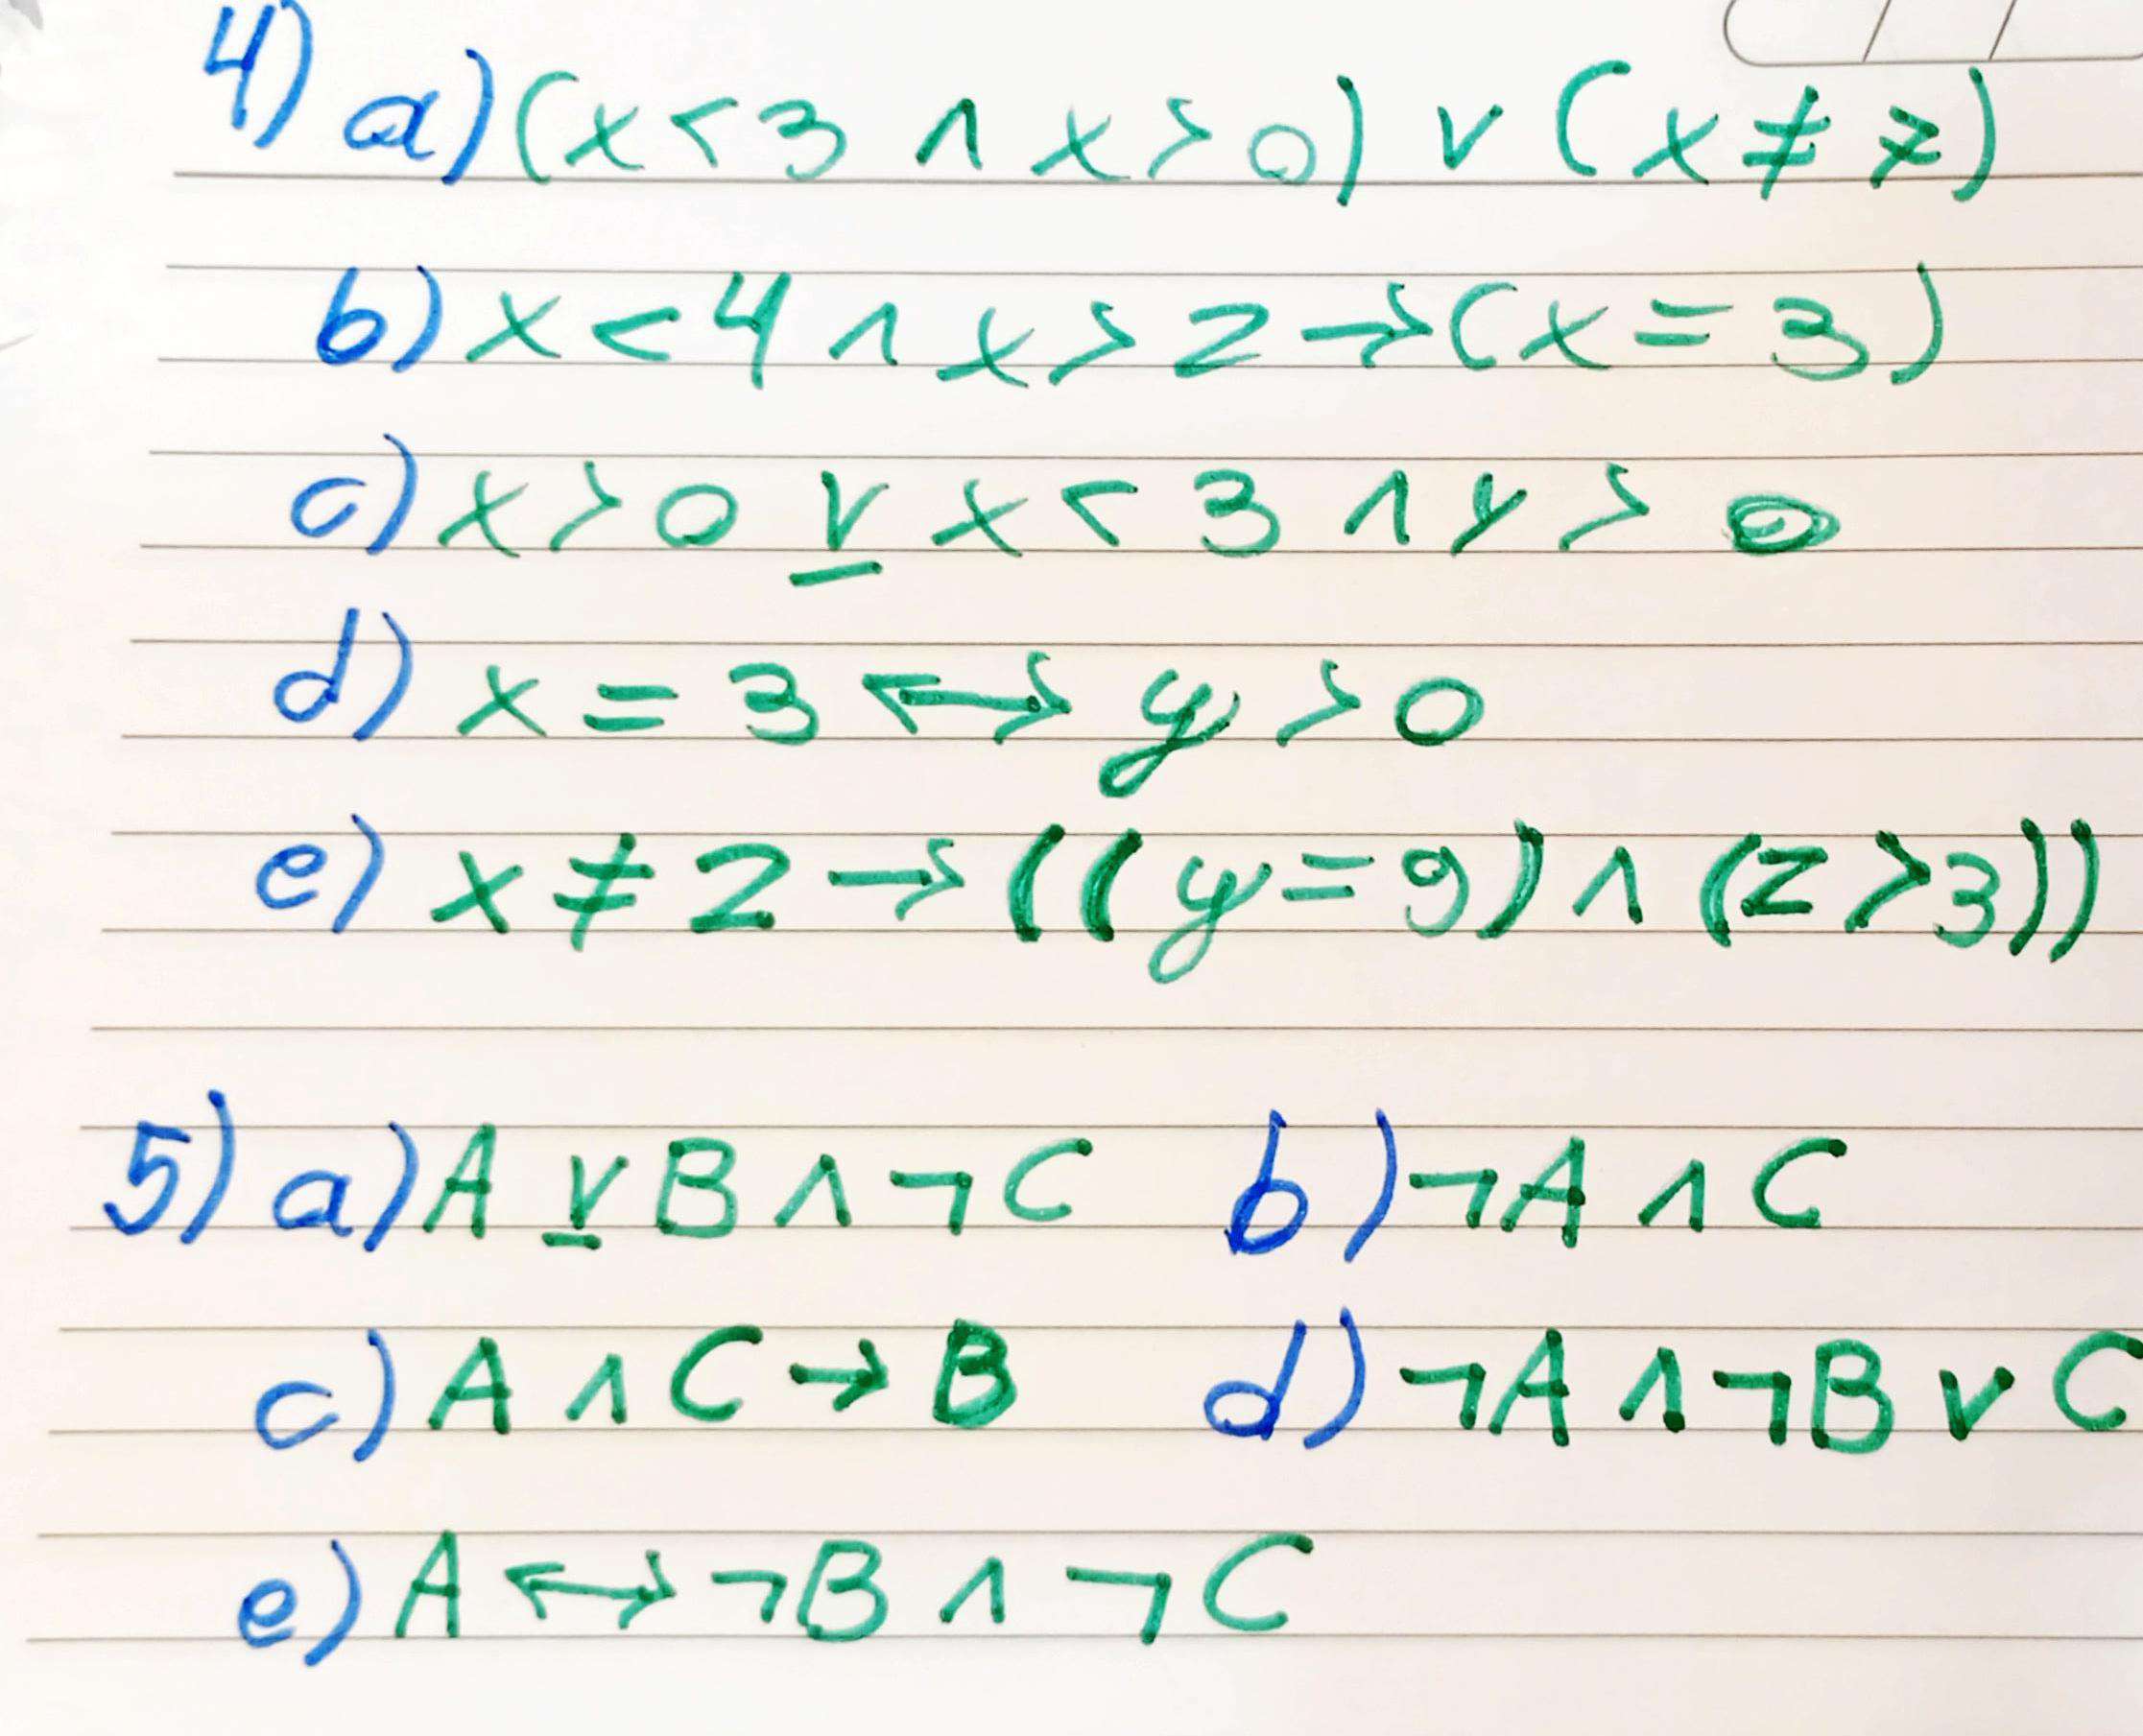 4) a) (x < 3 ∧ x > 0) ∨ (x ≠ 7)
b) x < 4 ∧ x > 2 → (x = 3)
c) x > 0 ⊻ x < 3 ∧ y > 0
d) x = 3 ↔ y > 0
e) x ≠ 2 → ((y = 9) ∧ (z > 3))
5) a) A ⊻ B ∧ ¬C b) ¬A ∧ C
c) A ∧ C → B d) ¬A ∧ ¬B ∨ C
e) A ↔ ¬B ∧ ¬C